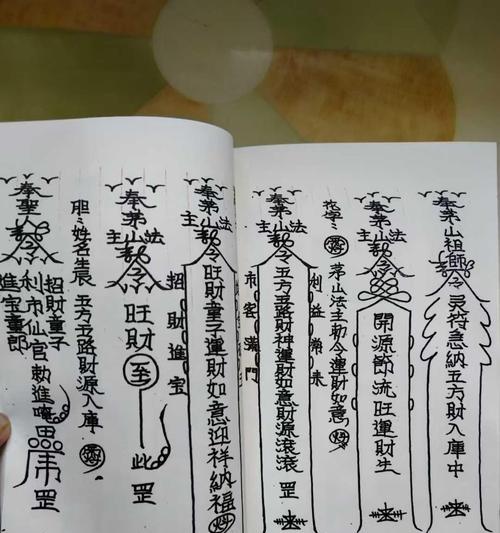 奉茅山祖師令灵符急納五方財入庫中
奉茅山法主敕令開源節流旺運財生
茅山法主勅令運財如意
奉茅山法主敕令五方五路財神運財如意財源滾滾罡
利益常来
市客滿門
奉茅山法主敕令旺財童子運財如意迎祥納福
招財進宝
奉茅山法主敕令旺財至此罡
姓名生辰五方五路財源入庫
奉聖敕令
招財童子
利市仙官勅進唵
進宝童郎
罡